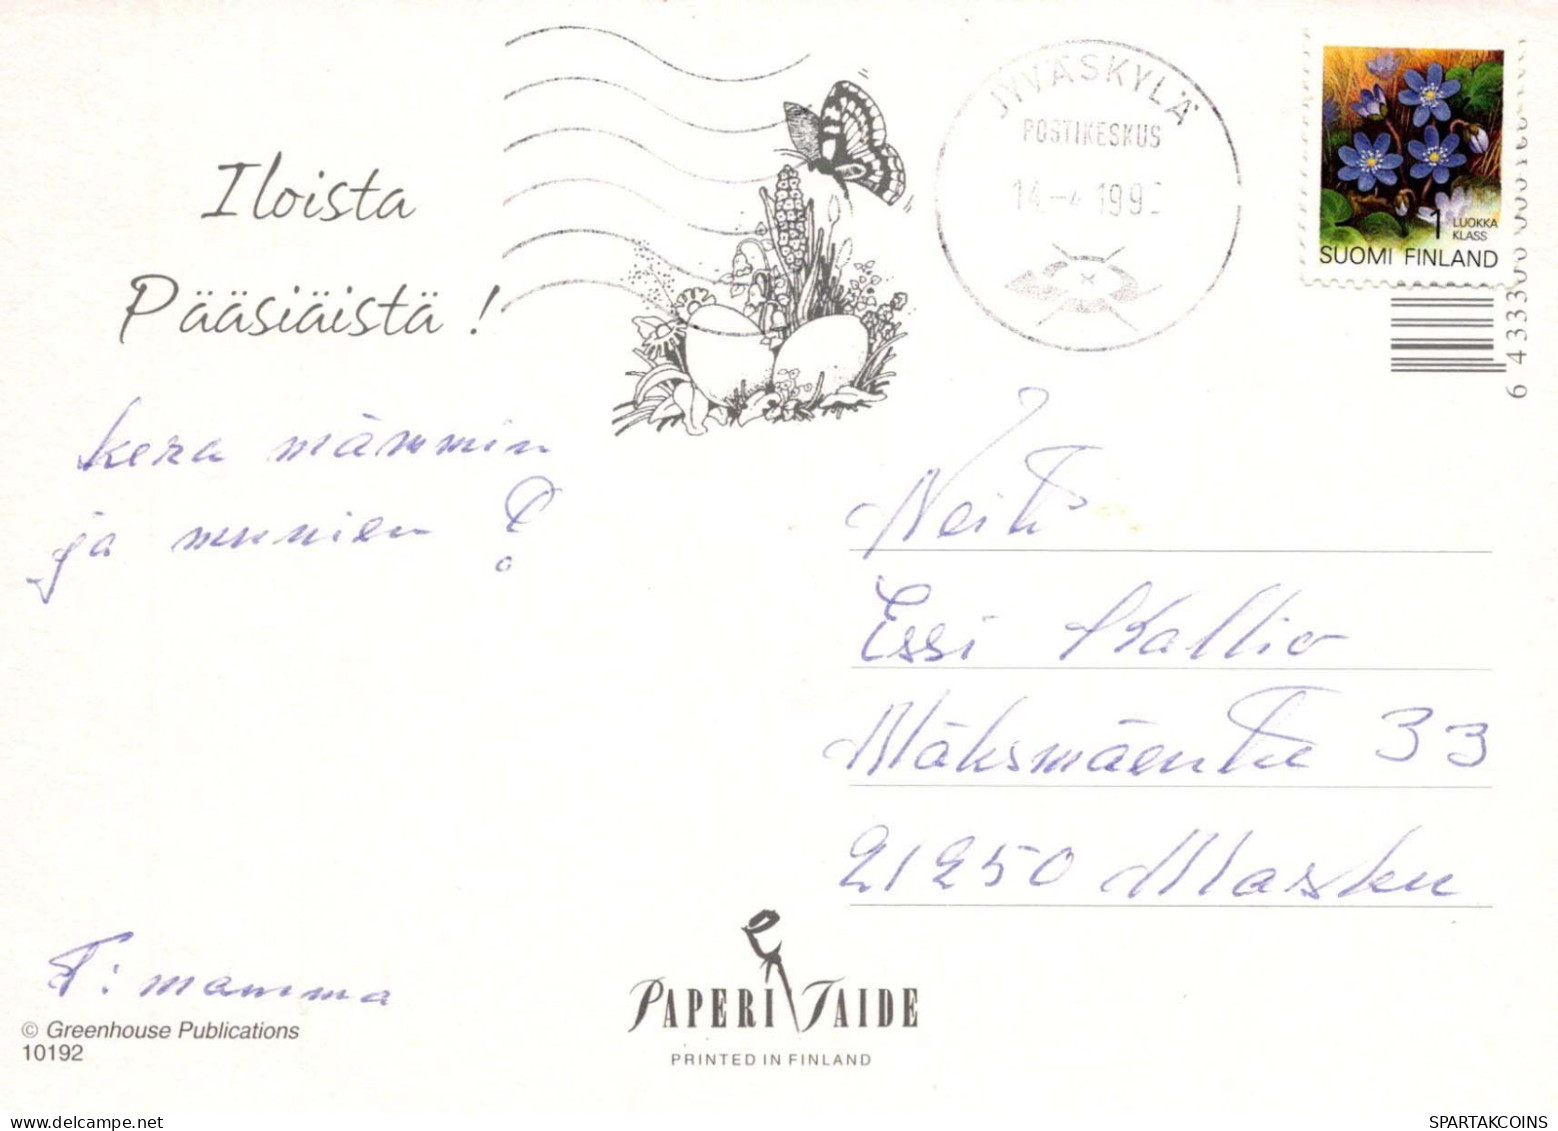 Iloista
Pääsiäistä !
kera mämmin
ja munien !
T: mamma
© Greenhouse Publications
10192
JYVÄSKYLÄ
POSTIKESKUS
14.-4.199
1 LUOKKA
KLASS
SUOMI FINLAND
6 43330
Neiti
Essi Kallio
21250 Masku
33
PAPERITAIDE
PRINTED IN FINLAND
SPARTAKCOINS